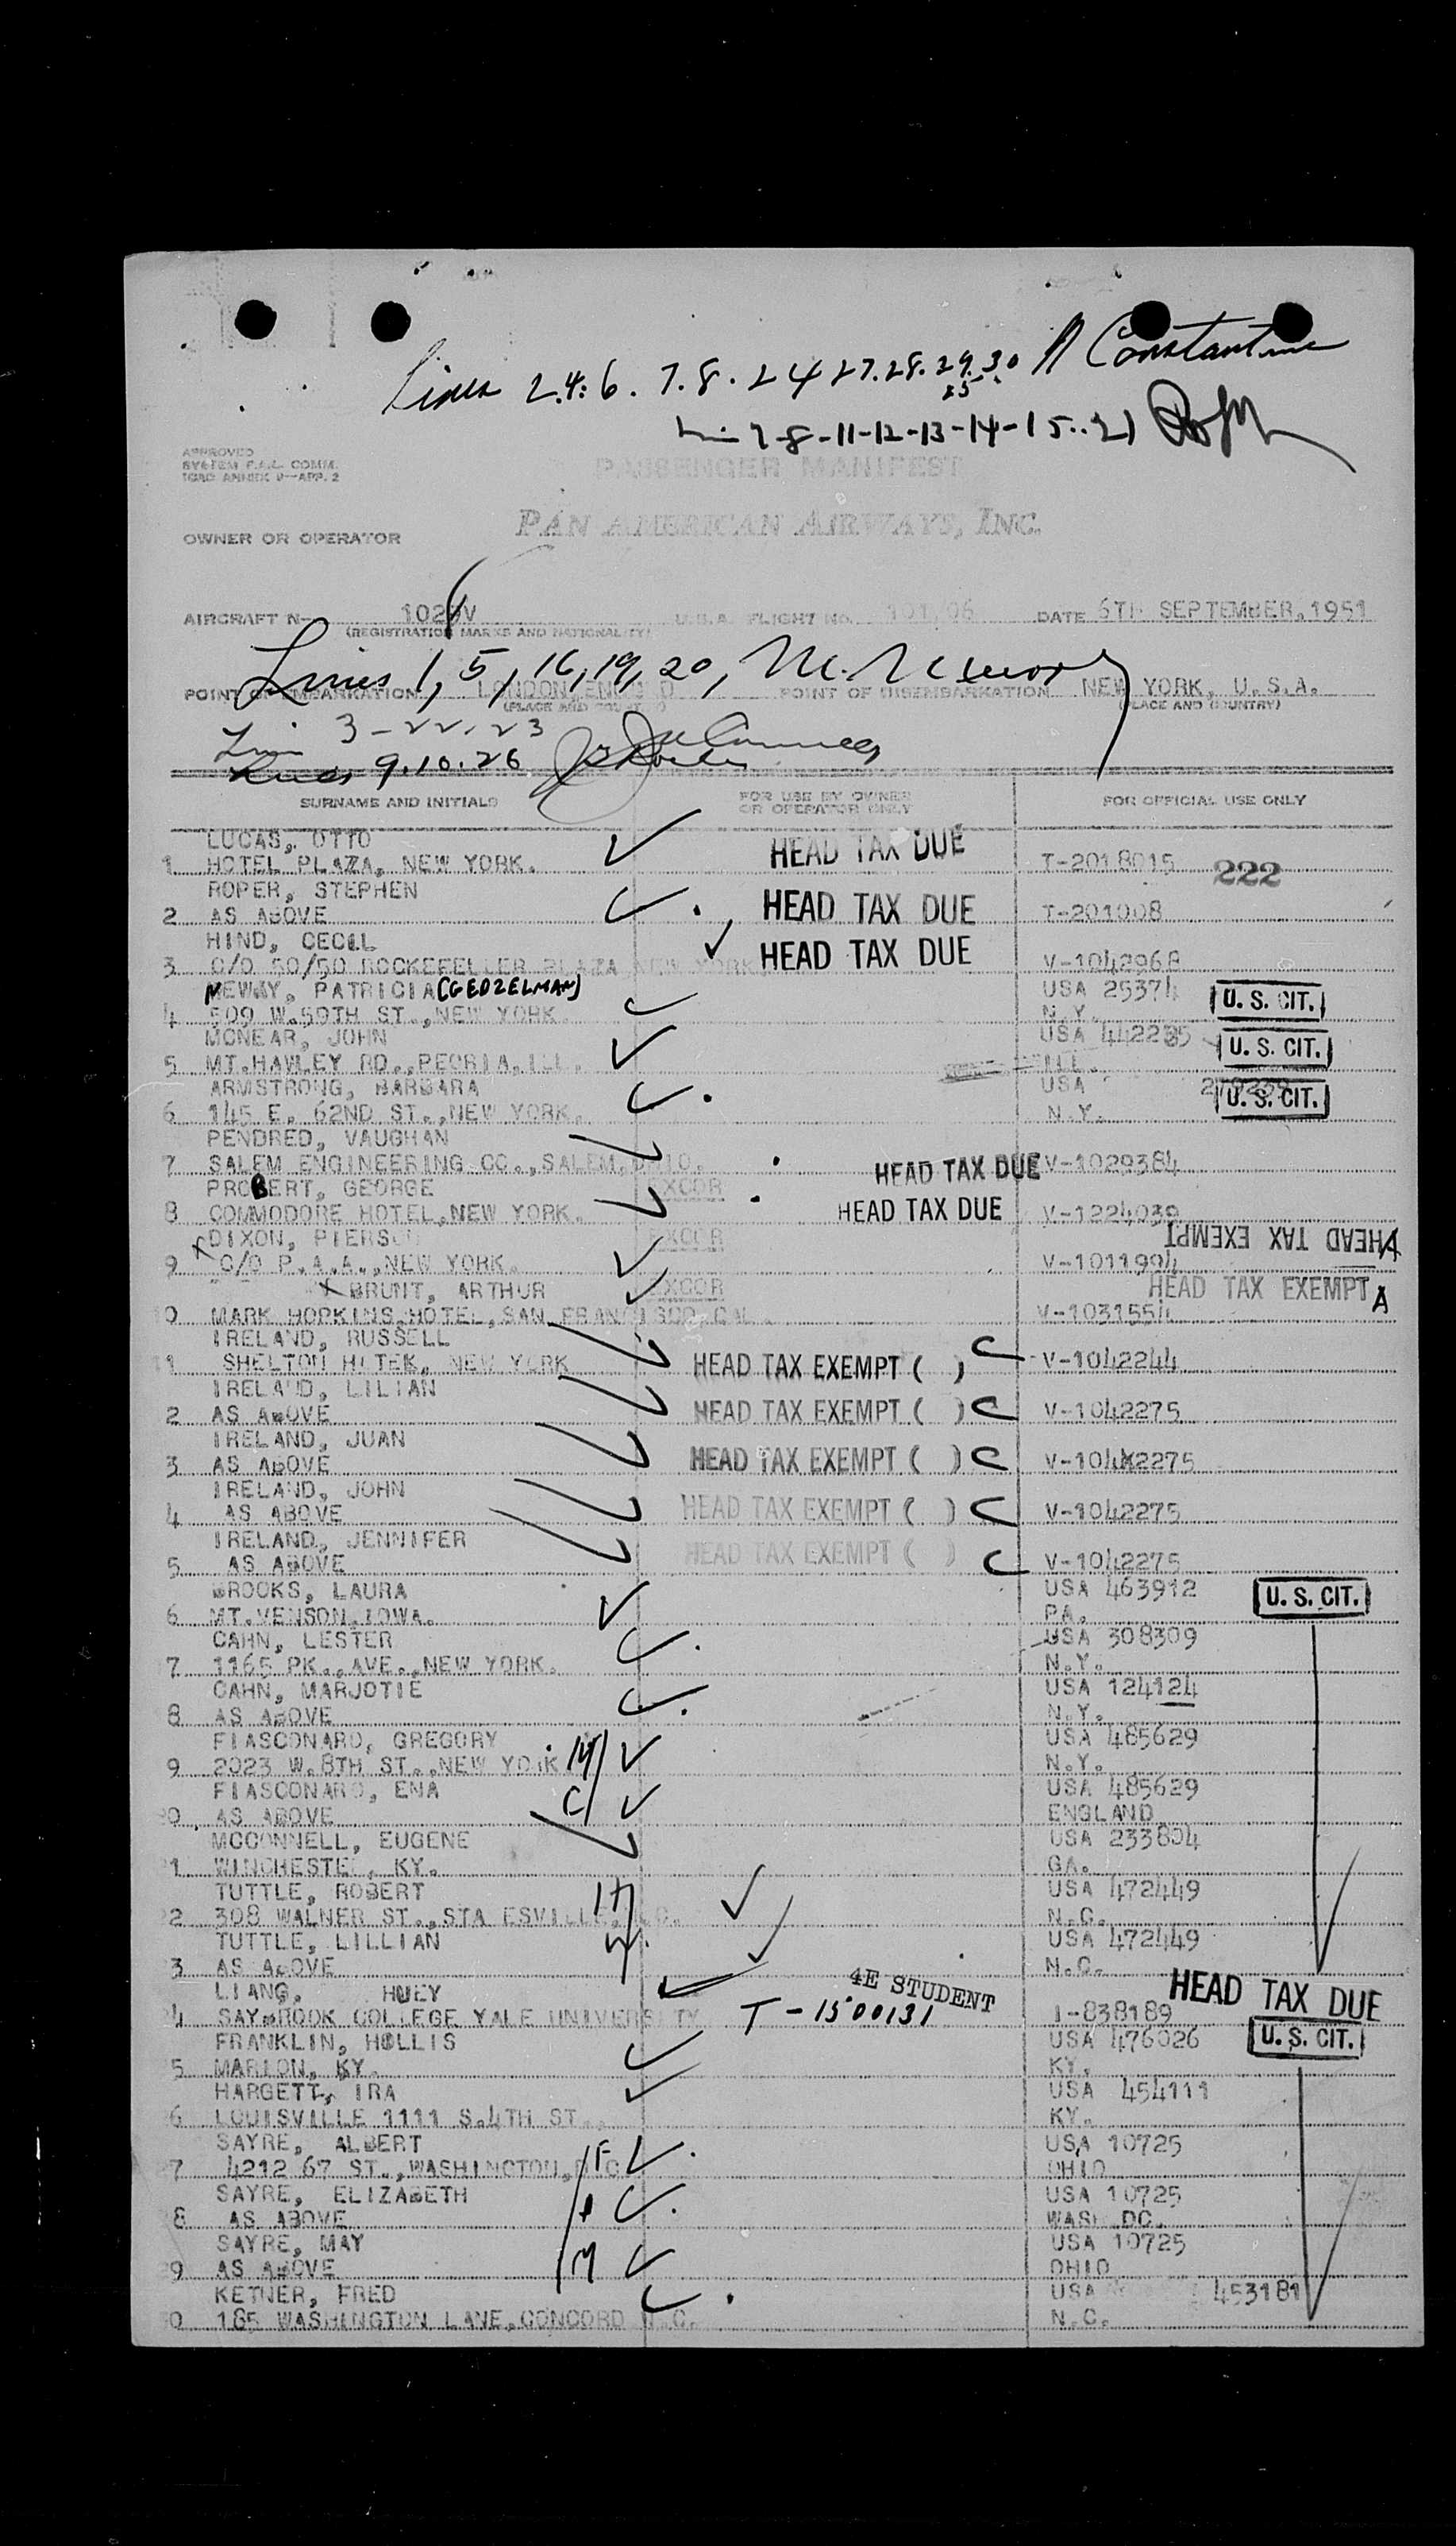 Lines 2.4.6.7.8.24 27.28.29.30 A Constantine
25
7-8-11-12-13-14-15..21
APPROVED
SYSTEM F.A.L. COMM.
ICAO ANNEX 9—APP. 2
PASSENGER MANIFEST
OWNER OR OPERATOR PAN AMERICAN AIRWAYS, INC.
AIRCRAFT N- U.S.A. FLIGHT NO. 101/06 DATE 6TH SEPTEMBER, 1951
(REGISTRATION MARKS AND NATIONALITY)
Lines 1, 5, 16, 19, 20,
POINT OF EMBARKATION LONDON, ENGLAND POINT OF DISEMBARKATION NEW YORK, U.S.A.
(PLACE AND COUNTRY) (PLACE AND COUNTRY)
3-22.23
Lines 9.10.26
SURNAME AND INITIALS FOR USE BY OWNER OR OPERATOR ONLY FOR OFFICIAL USE ONLY
LUCAS, OTTO HEAD TAX DUE
1 HOTEL PLAZA, NEW YORK. T-2018015 222
ROPER, STEPHEN
2 AS ABOVE HEAD TAX DUE T-201008
HIND, CECIL
3 C/O 50/50 ROCKEFELLER PLAZA NEW YORK HEAD TAX DUE V-1042968
NEWAY, PATRICIA (GEDZELMAN) USA 25374 U. S. CIT.
4 509 W.59TH ST.,NEW YORK N.Y.
MCNEAR, JOHN USA 442235 U. S. CIT.
5 MT.HAWLEY RD.,PEORIA,ILL. ILL.
ARMSTRONG, BARBARA USA U. S. CIT.
6 145 E. 62ND ST.,NEW YORK. N.Y.
PENDRED, VAUGHAN
7 SALEM ENGINEERING CO.,SALEM,OHIO. HEAD TAX DUE V-1029384
PROBERT, GEORGE EXCOR
8 COMMODORE HOTEL,NEW YORK. HEAD TAX DUE V-1224039
DIXON, PIERSON EXCOR HEAD TAX EXEMPT A
9 C/O P.A.A.,NEW YORK. V-1011994
X BRUNT, ARTHUR EXCOR HEAD TAX EXEMPT A
0 MARK HOPKINS HOTEL,SAN FRANCISCO,CAL. V-1031554
IRELAND, RUSSELL
11 SHELTON HOTEK, NEW YORK HEAD TAX EXEMPT ( ) C V-1042244
IRELAND, LILIAN
2 AS ABOVE HEAD TAX EXEMPT ( ) C V-1042275
IRELAND, JUAN
3 AS ABOVE HEAD TAX EXEMPT ( ) C V-104X2275
IRELAND, JOHN
4 AS ABOVE HEAD TAX EXEMPT ( ) C V-1042275
IRELAND, JENNIFER
5 AS ABOVE HEAD TAX EXEMPT ( ) C V-1042275
BROOKS, LAURA USA 463912 U. S. CIT.
6 MT.VENSON,IOWA. PA.
CAHN, LESTER USA 308309
7 1165 PK.,AVE.,NEW YORK. N.Y.
CAHN, MARJOTIE USA 124124
8 AS ABOVE N.Y.
FIASCONARO, GREGORY USA 485629
9 2023 W.8TH ST.,NEW YORK M N.Y.
FIASCONARO, ENA USA 485629
20 AS ABOVE C ENGLAND
MCCONNELL, EUGENE USA 233804
21 WINCHESTER, KY. GA.
TUTTLE, ROBERT H USA 472449
22 308 WALNER ST.,STA ESVILLE, N.C. N.C.
TUTTLE, LILLIAN W USA 472449
3 AS ABOVE N.C.
LIANG, HUEY 4E STUDENT HEAD TAX DUE
4 SAYBROOK COLLEGE YALE UNIVERSITY T-1500131 I-838189
FRANKLIN, HOLLIS USA 476026 U. S. CIT.
5 MARION, KY. KY.
HARGETT, IRA USA 454111
6 LOUISVILLE 1111 S.4TH ST., KY.
SAYRE, ALBERT USA 10725
7 4212 67 ST.,WASHINGTON,D C F OHIO
SAYRE, ELIZABETH USA 10725
8 AS ABOVE WASH DC.
SAYRE, MAY USA 10725
9 AS ABOVE M OHIO
KETNER, FRED USA 453181
0 185 WASHINGTON LANE,CONCORD N.C. N.C.